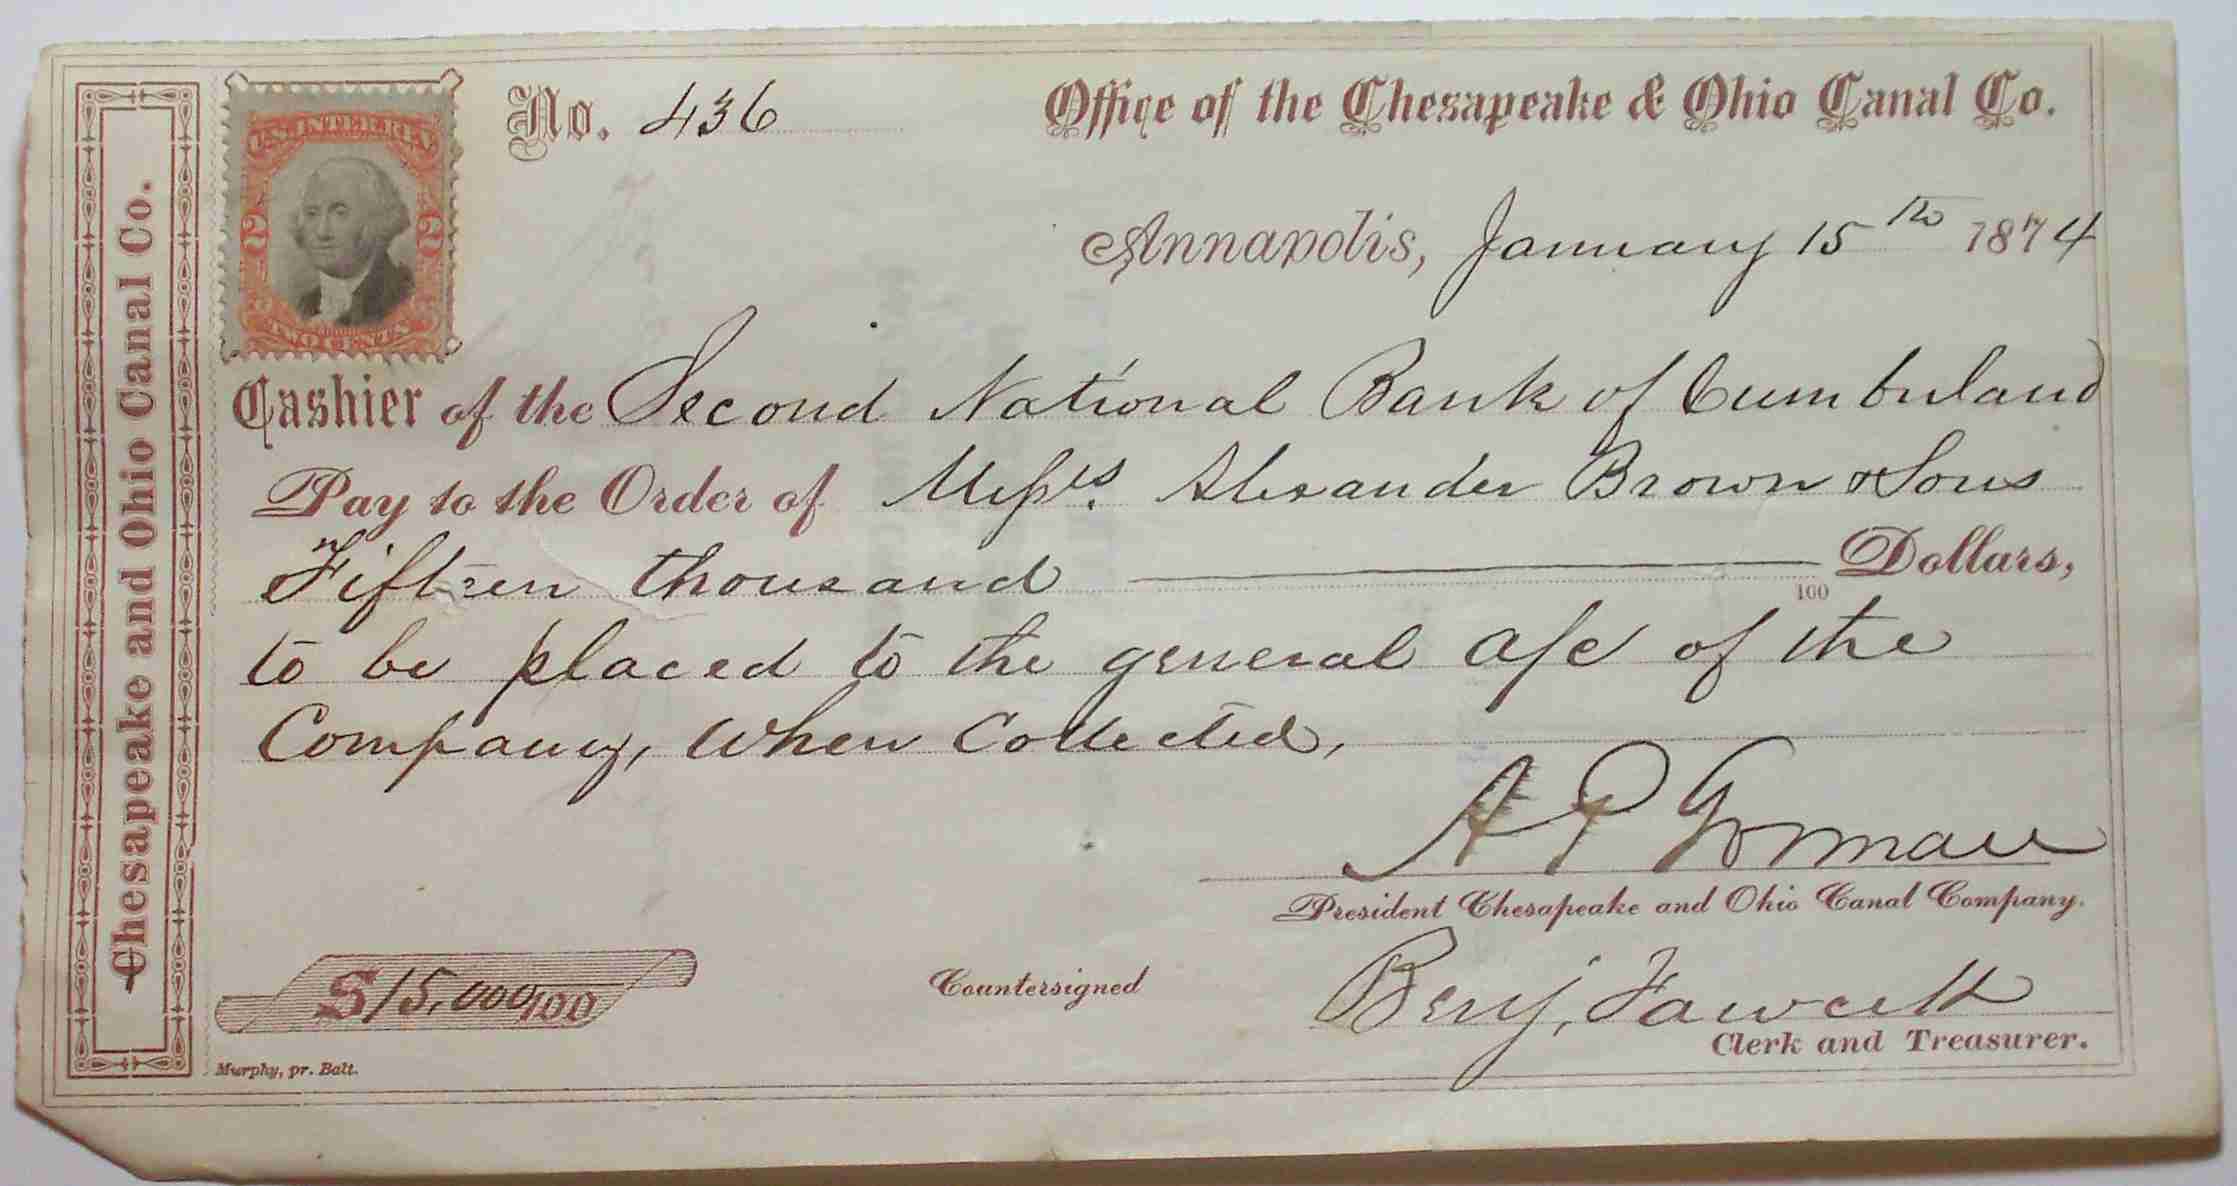 Chesapeake and Ohio Canal Co.
U.S. INTER. REV.
2 2
TWO CENTS
No. 436
Office of the Chesapeake & Ohio Canal Co.
Annapolis, January 15th 1874
Cashier of the Second National Bank of Cumberland
Pay to the Order of Messrs. Alexander Brown & Sons
Fifteen thousand Dollars,
100
to be placed to the general a/c of the
Company, when collected,
A P Gorman
President Chesapeake and Ohio Canal Company.
$15,000/100
Countersigned
Benj. Fawcett
Clerk and Treasurer.
Murphy, pr. Balt.